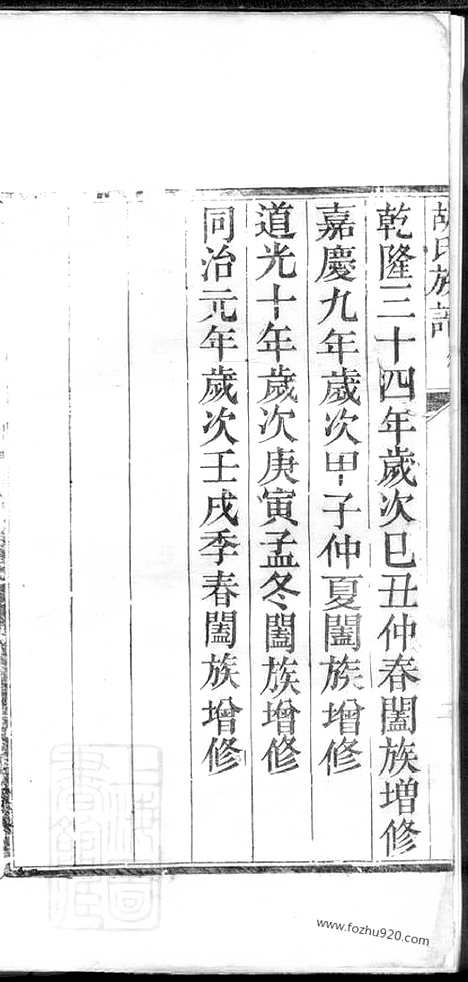 胡氏族譜
乾隆三十四年歲次己丑仲春闔族增修
嘉慶九年歲次甲子仲夏闔族增修
道光十年歲次庚寅孟冬闔族增修
同治元年歲次壬戌季春闔族增修
www.fozhu920.com